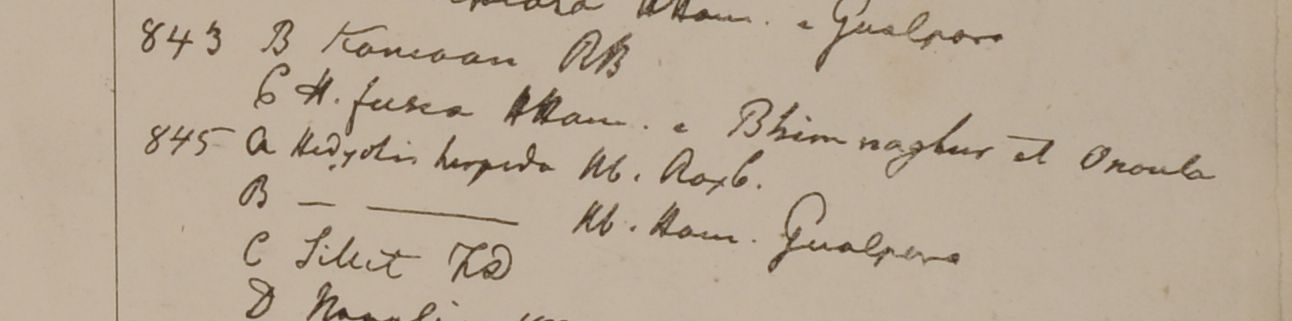 HHam. e Gualpara
843 B Kamoan RB
C H. fusca HHam. e Bhimnaghur et Onoula
845 a Hedyotis hispida Hb. Roxb.
B — —— Hb. Ham. Gualpara
C Silhet FD
D